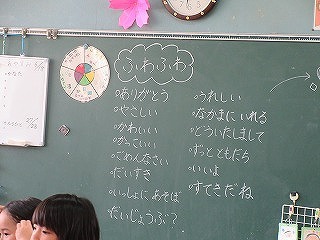 ふわふわ
ありがとう
やさしい
かわいい
かっこいい
ごめんなさい
だいすき
いっしょにあそぼ
だいじょうぶ?
うれしい
なかまにいれる
どういたしまして
ずっとともだち
いいよ
すてきだね